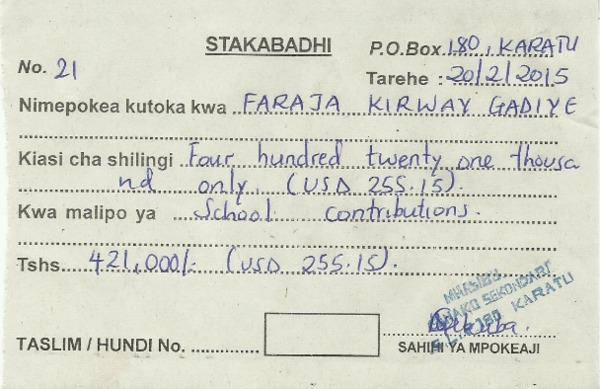 STAKABADHI
P.O.Box 180, KARATU
No. 21
Tarehe : 20/2/2015
Nimepokea kutoka kwa FARAJA KIRWAY GADIYE
Kiasi cha shilingi Four hundred twenty one thousa
nd only (USD 255.15).
Kwa malipo ya School contributions.
Tshs. 421,000/- (USD 255.15).
MHASIBU
SEKONDARI
180 KARATU
TASLIM / HUNDI No.
SAHIHI YA MPOKEAJI